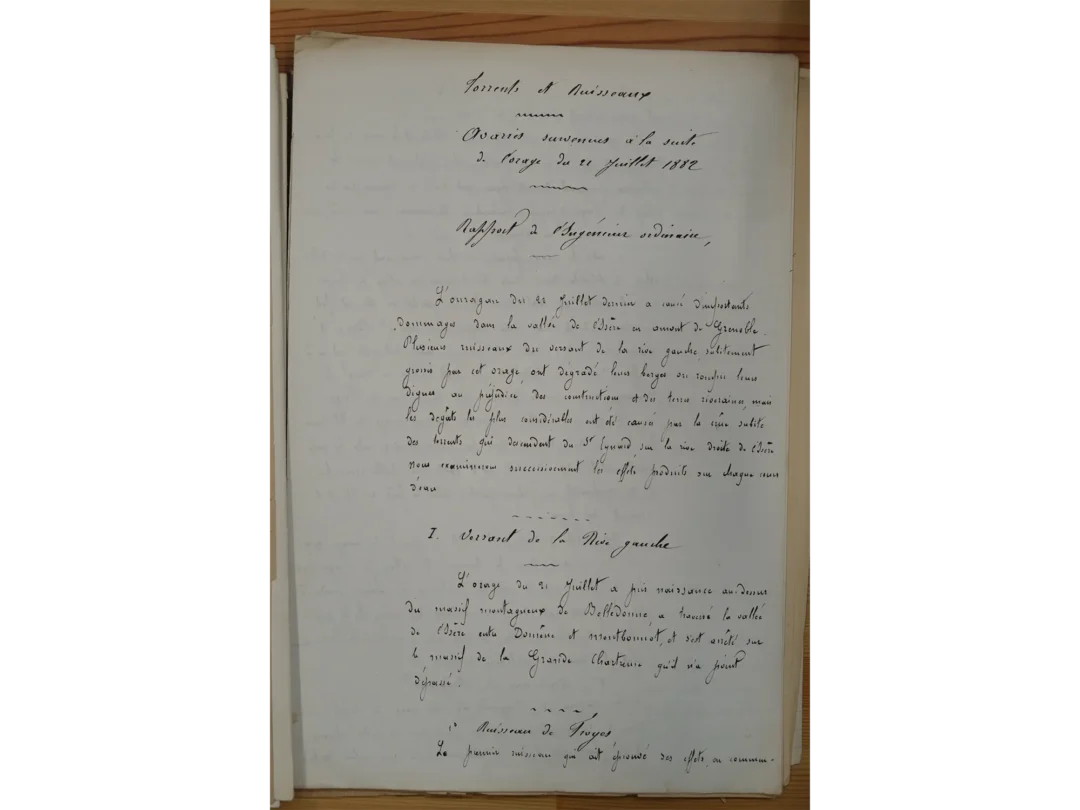 Torrents et Ruisseaux
Avaries survenues à la suite
de l'orage du 21 Juillet 1882
Rapport de l'Ingénieur ordinaire,
L'ouragan du 21 Juillet dernier a causé d'importants
dommages dans la vallée de l'Isère en amont de Grenoble.
Plusieurs ruisseaux du versant de la rive gauche, subitement
grossis par cet orage, ont dégradé leurs berges ou rompu leurs
digues au préjudice des constructions et des terres riveraines, mais
les dégâts les plus considérables ont été causés par la crûe subite
des torrents qui descendent du St Eynard sur la rive droite de l'Isère
nous examinerons successivement les effets produits sur chaque cours
d'eau
I. Versant de la Rive gauche
L'orage du 21 Juillet a pris naissance au-dessus
du massif montagneux de Belledonne, a traversé la vallée
de l'Isère entre Domène et Montbonnot, et s'est arrêté sur
le massif de la Grande Chartreuse qu'il n'a point
dépassé.
1° Ruisseau de Froges
Le premier ruisseau qui ait éprouvé ses effets, en commen-